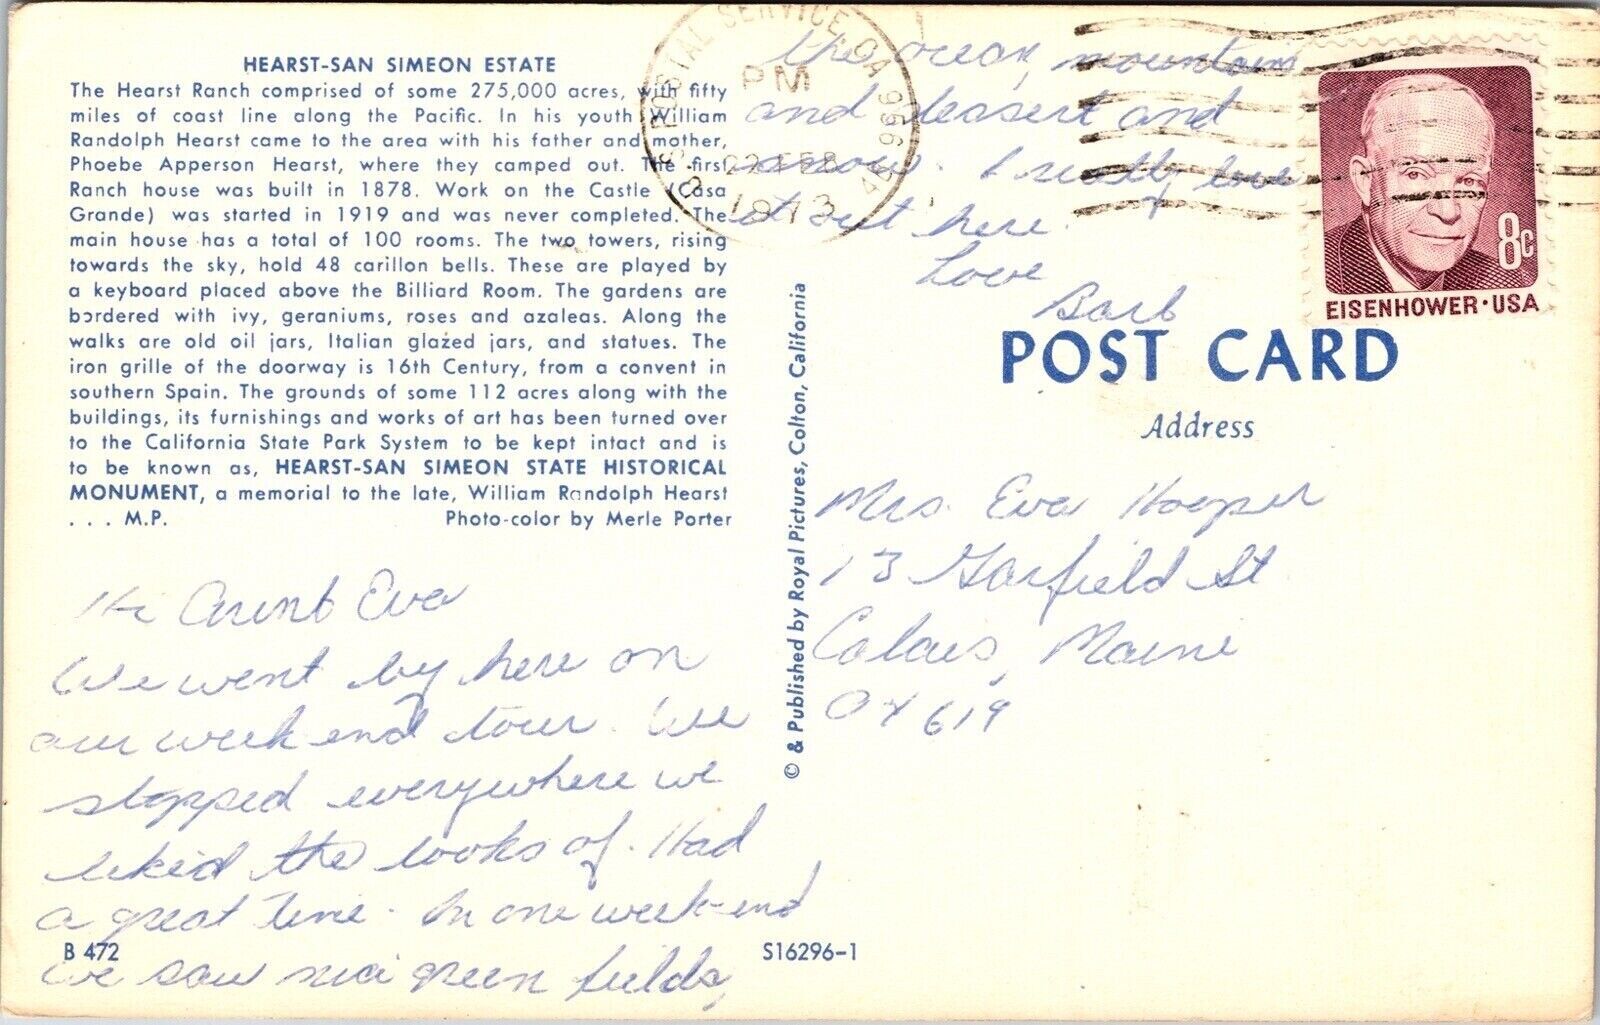 HEARST-SAN SIMEON ESTATE
The Hearst Ranch comprised of some 275,000 acres, with fifty
miles of coast line along the Pacific. In his youth William
Randolph Hearst came to the area with his father and mother,
Phoebe Apperson Hearst, where they camped out. The first
Ranch house was built in 1878. Work on the Castle (Casa
Grande) was started in 1919 and was never completed. The
main house has a total of 100 rooms. The two towers, rising
towards the sky, hold 48 carillon bells. These are played by
a keyboard placed above the Billiard Room. The gardens are
bordered with ivy, geraniums, roses and azaleas. Along the
walks are old oil jars, Italian glazed jars, and statues. The
iron grille of the doorway is 16th Century, from a convent in
southern Spain. The grounds of some 112 acres along with the
buildings, its furnishings and works of art has been turned over
to the California State Park System to be kept intact and is
to be known as, HEARST-SAN SIMEON STATE HISTORICAL
MONUMENT, a memorial to the late, William Randolph Hearst
. . . M.P. Photo-color by Merle Porter
Hi Aunt Eva
We went by here on
our week end tour. We
stopped everywhere we
liked the looks of. Had
a great time. In one week-end
we saw nice green fields,
B 472
S16296-1
the ocean, mountains
and dessert and
snow. I really love
it out here.
Love
Barb
U.S. POSTAL SERVICE, CA
PM
22 FEB
1973
EISENHOWER·USA
8c
POST CARD
Address
Mrs. Eva Hooper
13 Garfield St
Calais, Maine
04619
© & Published by Royal Pictures, Colton, California